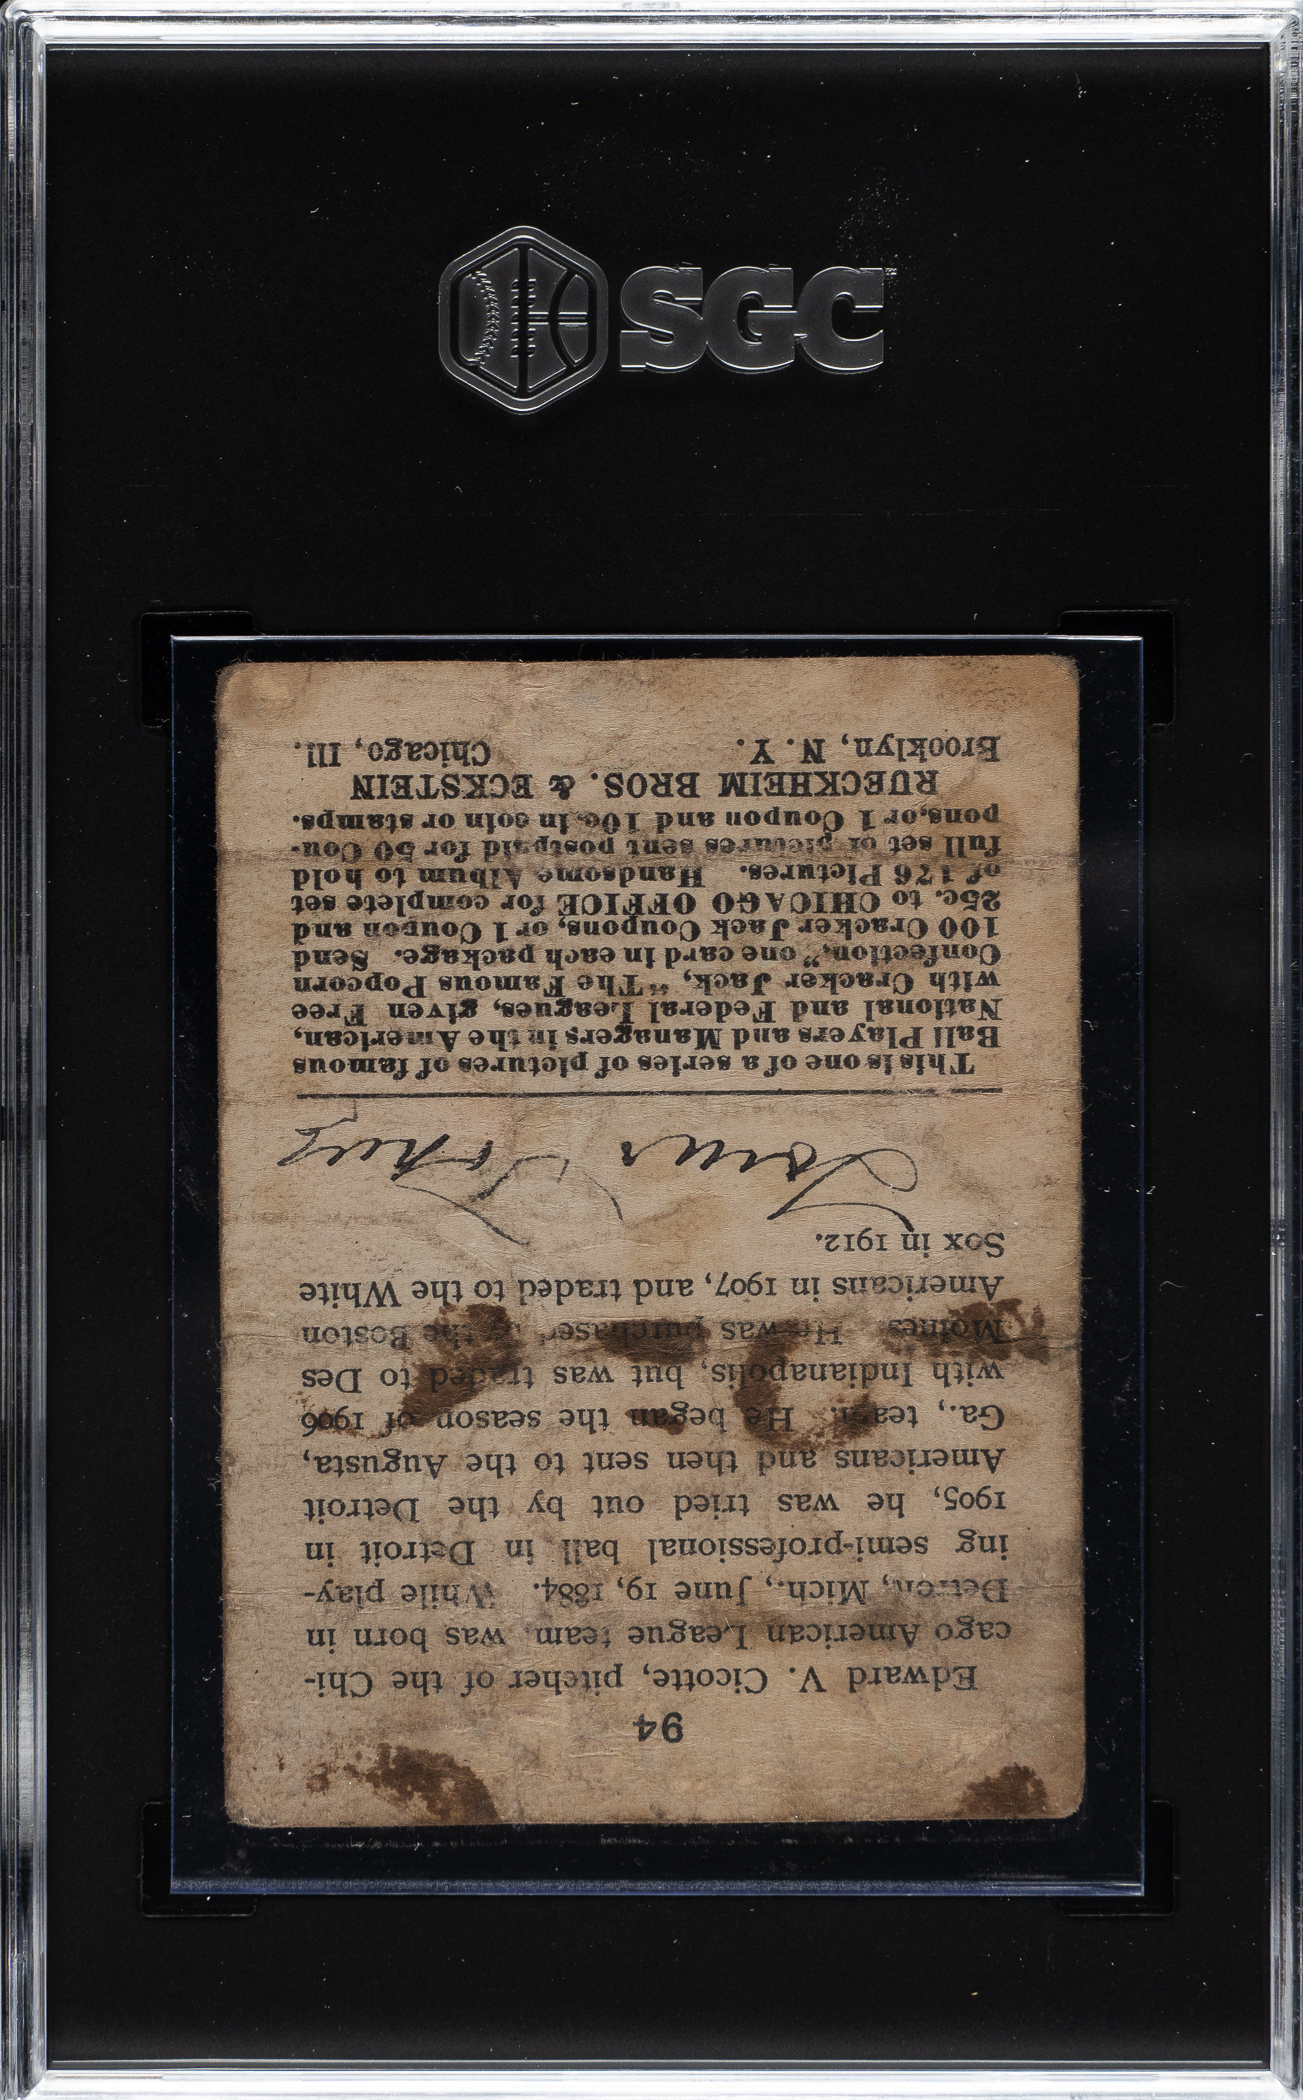 SGC
94
Edward V. Cicotte, pitcher of the Chi-
cago American League team, was born in
Detroit, Mich., June 19, 1884. While play-
ing semi-professional ball in Detroit in
1905, he was tried out by the Detroit
Americans and then sent to the Augusta,
Ga., team. He began the season of 1906
with Indianapolis, but was traded to Des
Moines. He was purchased by the Boston
Americans in 1907, and traded to the White
Sox in 1912.
This is one of a series of pictures of famous
Ball Players and Managers in the American,
National and Federal Leagues, given Free
with Cracker Jack, "The Famous Popcorn
Confection," one card in each package. Send
100 Cracker Jack Coupons, or 1 Coupon and
25c. to CHICAGO OFFICE for complete set
of 176 Pictures. Handsome Album to hold
full set of pictures sent postpaid for 50 Cou-
pons, or 1 Coupon and 10c. in coin or stamps.
RUECKHEIM BROS. & ECKSTEIN
Brooklyn, N. Y. Chicago, Ill.